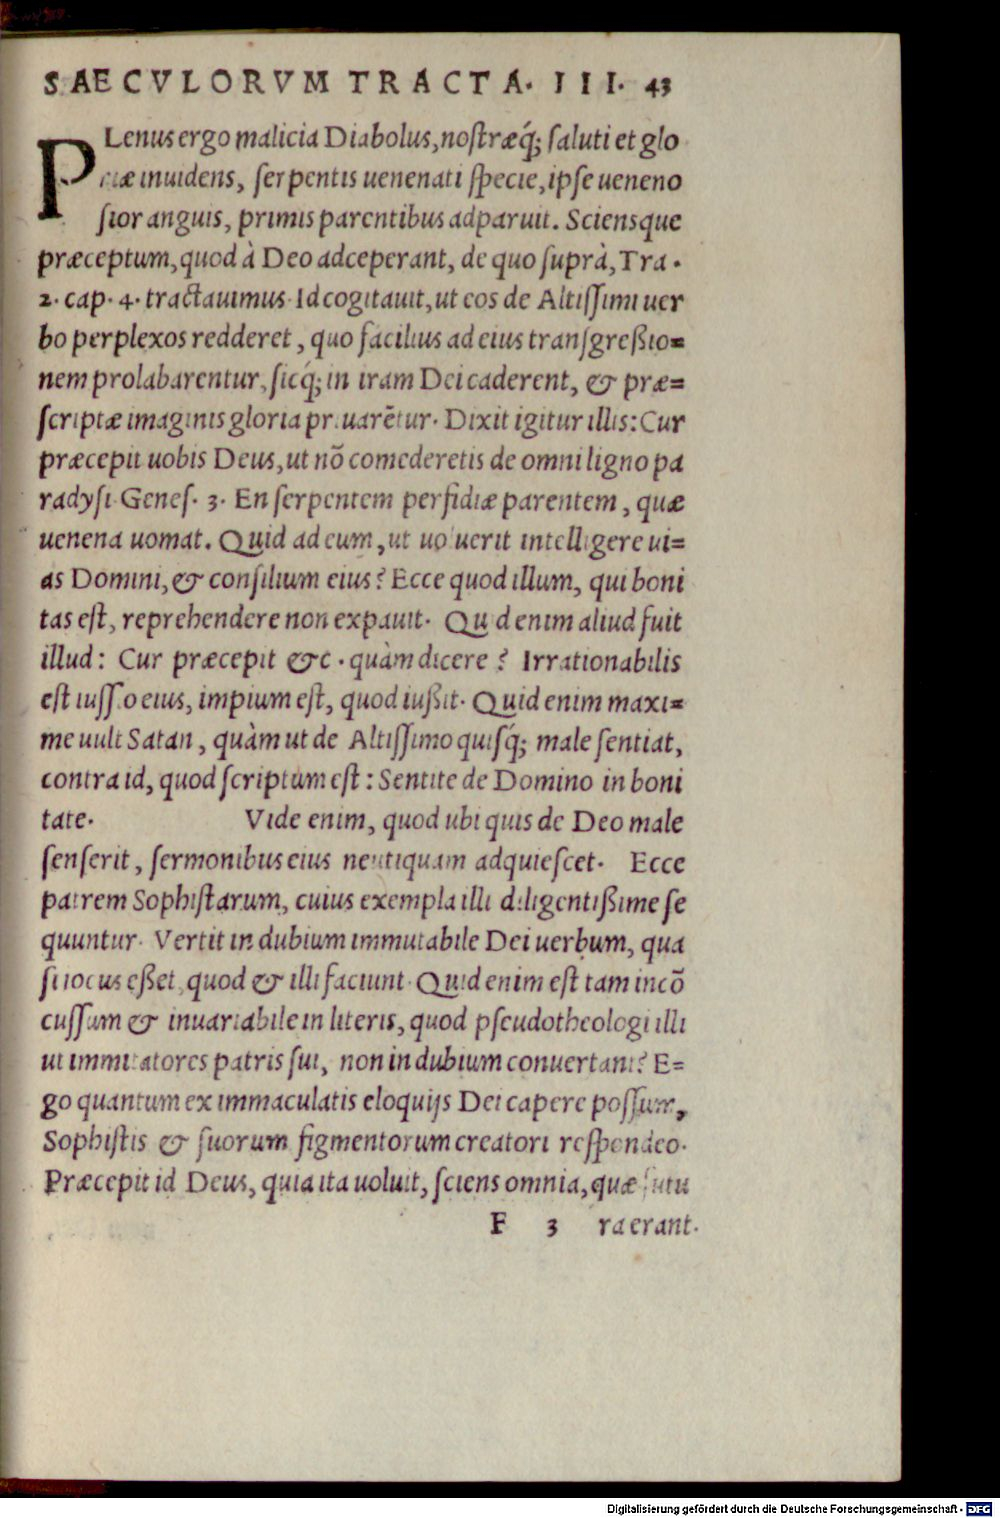 SAECVLORVM TRACTA. III. 43
PLenus ergo malicia Diabolus, nostræq́; saluti et glo
riæ inuidens, serpentis uenenati specie, ipse ueneno
sior anguis, primis parentibus adparuit. Sciensque
præceptum, quod à Deo adceperant, de quo suprà, Tra.
2. cap. 4. tractauimus Id cogitauit, ut eos de Altissimi uer
bo perplexos redderet, quo facilius ad eius transgreßio=
nem prolabarentur, sicq́; in iram Dei caderent, & præ=
scriptæ imaginis gloria priuarētur. Dixit igitur illis: Cur
præcepit uobis Deus, ut nō comederetis de omni ligno pa
radysi Genes. 3. En serpentem perfidiæ parentem, quæ
uenena uomat. Quid ad eum, ut uoluerit intelligere ui=
as Domini, & consilium eius? Ecce quod illum, qui boni
tas est, reprehendere non expauit. Quid enim aliud fuit
illud: Cur præcepit &c. quàm dicere? Irrationabilis
est iussio eius, impium est, quod iußit. Quid enim maxi=
me uult Satan, quàm ut de Altissimo quisq́; male sentiat,
contra id, quod scriptum est: Sentite de Domino in boni
tate. Vide enim, quod ubi quis de Deo male
senserit, sermonibus eius neutiquam adquiescet. Ecce
patrem Sophistarum, cuius exempla illi diligentißime se
quuntur. Vertit in dubium immutabile Dei uerbum, qua
si iocus eßet, quod & illi faciunt. Quid enim est tam incō
cussum & inuariabile in literis, quod pseudotheologi illi
ut immitatores patris sui, non in dubium conuertant? E=
go quantum ex immaculatis eloquijs Dei capere possum,
Sophistis & suorum figmentorum creatori respondeo.
Præcepit id Deus, quia ita uoluit, sciens omnia, quæ futu
F 3 ra erant.
Digitalisierung gefördert durch die Deutsche Forschungsgemeinschaft - DFG